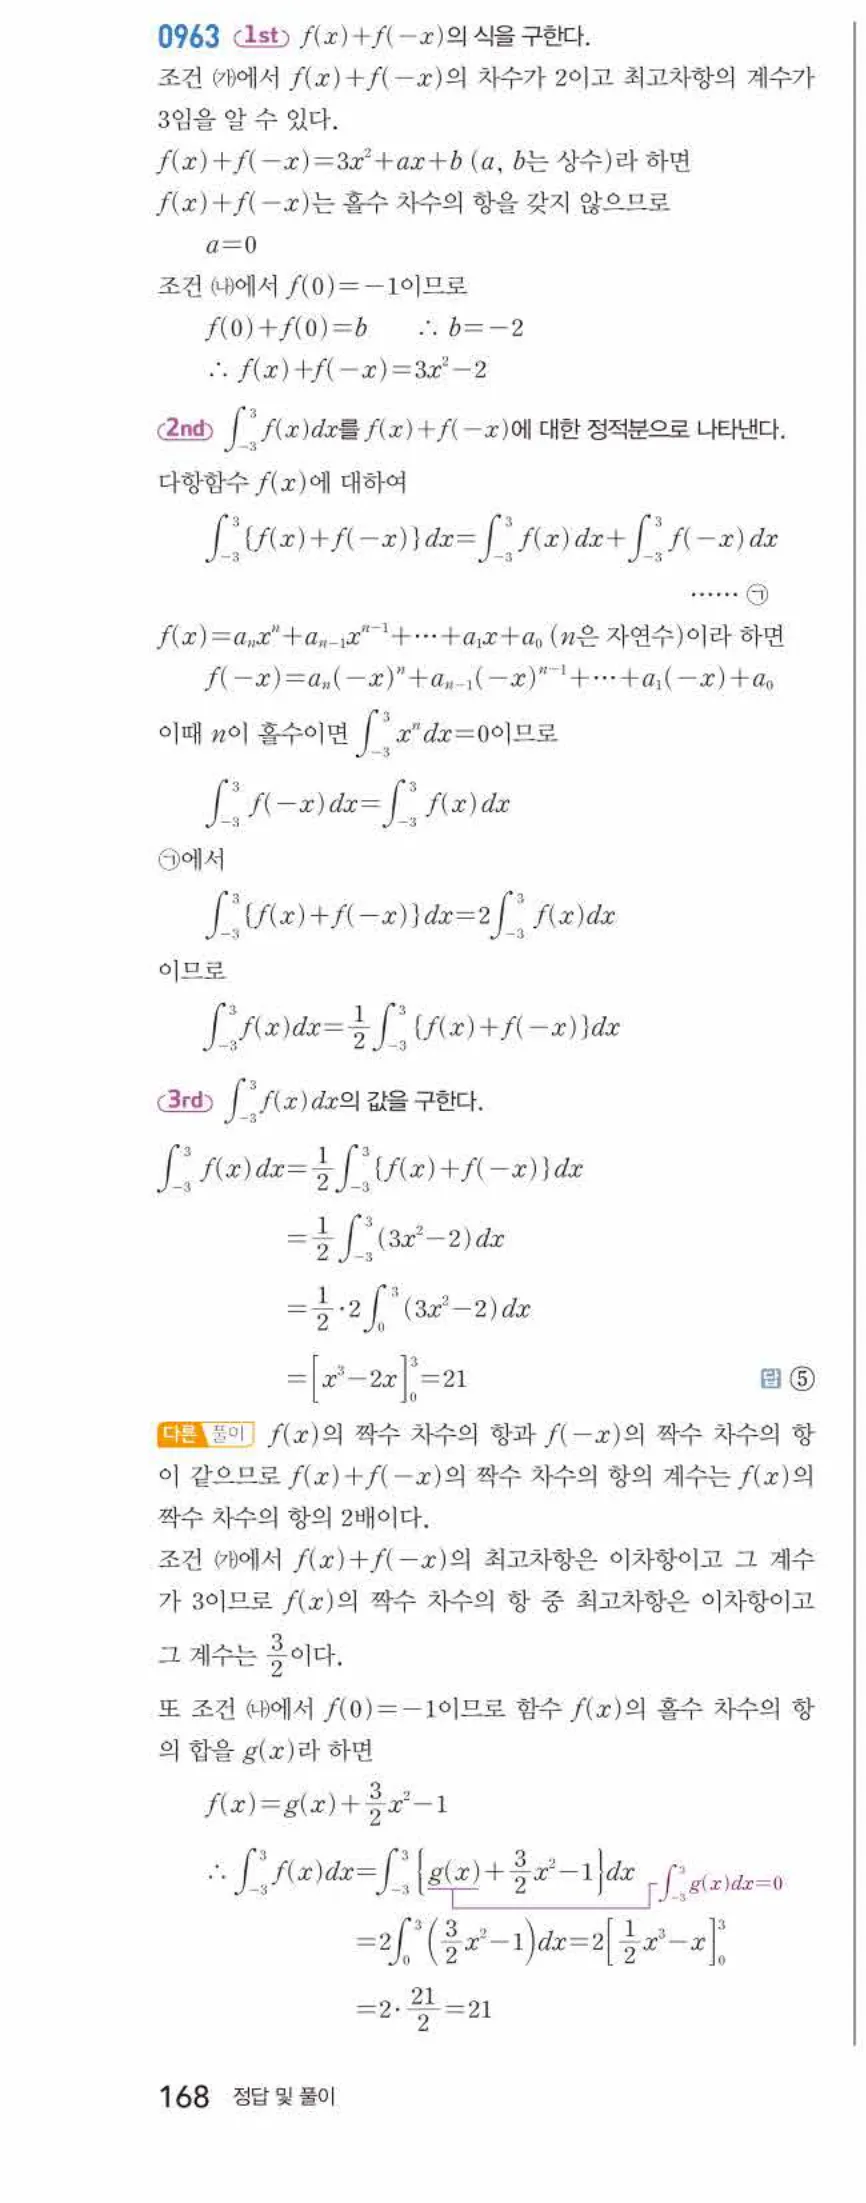 0963 1st f(x)+f(-x)의 식을 구한다.
조건 ㈎에서 f(x)+f(-x)의 차수가 2이고 최고차항의 계수가
3임을 알 수 있다.
f(x)+f(-x)=3x²+ax+b (a, b는 상수)라 하면
f(x)+f(-x)는 홀수 차수의 항을 갖지 않으므로
a=0
조건 ㈏에서 f(0)=-1이므로
f(0)+f(0)=b ∴ b=-2
∴ f(x)+f(-x)=3x²-2
2nd ∫_{-3}^{3} f(x)dx를 f(x)+f(-x)에 대한 정적분으로 나타낸다.
다항함수 f(x)에 대하여
∫_{-3}^{3} {f(x)+f(-x)}dx=∫_{-3}^{3} f(x)dx+∫_{-3}^{3} f(-x)dx
…… ㉠
f(x)=a_n x^n+a_{n-1}x^{n-1}+⋯+a₁x+a₀ (n은 자연수)이라 하면
f(-x)=a_n(-x)^n+a_{n-1}(-x)^{n-1}+⋯+a₁(-x)+a₀
이때 n이 홀수이면 ∫_{-3}^{3} x^n dx=0이므로
∫_{-3}^{3} f(-x)dx=∫_{-3}^{3} f(x)dx
㉠에서
∫_{-3}^{3} {f(x)+f(-x)}dx=2∫_{-3}^{3} f(x)dx
이므로
∫_{-3}^{3} f(x)dx=1/2 ∫_{-3}^{3} {f(x)+f(-x)}dx
3rd ∫_{-3}^{3} f(x)dx의 값을 구한다.
∫_{-3}^{3} f(x)dx=1/2 ∫_{-3}^{3} {f(x)+f(-x)}dx
=1/2 ∫_{-3}^{3} (3x²-2)dx
=1/2·2∫_{0}^{3} (3x²-2)dx
=[x³-2x]_{0}^{3}=21 답 ⑤
다른 풀이 f(x)의 짝수 차수의 항과 f(-x)의 짝수 차수의 항
이 같으므로 f(x)+f(-x)의 짝수 차수의 항의 계수는 f(x)의
짝수 차수의 항의 2배이다.
조건 ㈎에서 f(x)+f(-x)의 최고차항은 이차항이고 그 계수
가 3이므로 f(x)의 짝수 차수의 항 중 최고차항은 이차항이고
그 계수는 3/2이다.
또 조건 ㈏에서 f(0)=-1이므로 함수 f(x)의 홀수 차수의 항
의 합을 g(x)라 하면
f(x)=g(x)+3/2 x²-1
∴ ∫_{-3}^{3} f(x)dx=∫_{-3}^{3} {g(x)+3/2 x²-1}dx ∫_{-3}^{3} g(x)dx=0
=2∫_{0}^{3} (3/2 x²-1)dx=2[1/2 x³-x]_{0}^{3}
=2·21/2=21
168 정답 및 풀이